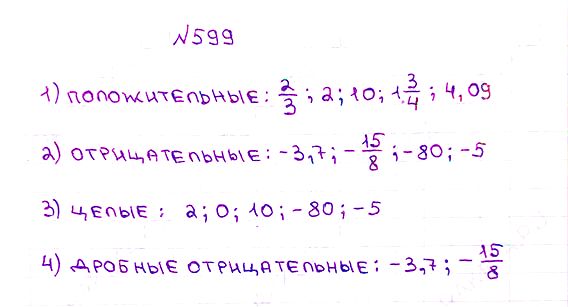 №599
1) ПОЛОЖИТЕЛЬНЫЕ: 2/3; 2; 10; 1 3/4; 4,09
2) ОТРИЦАТЕЛЬНЫЕ: -3,7; -15/8; -80; -5
3) ЦЕЛЫЕ: 2; 0; 10; -80; -5
4) ДРОБНЫЕ ОТРИЦАТЕЛЬНЫЕ: -3,7; -15/8